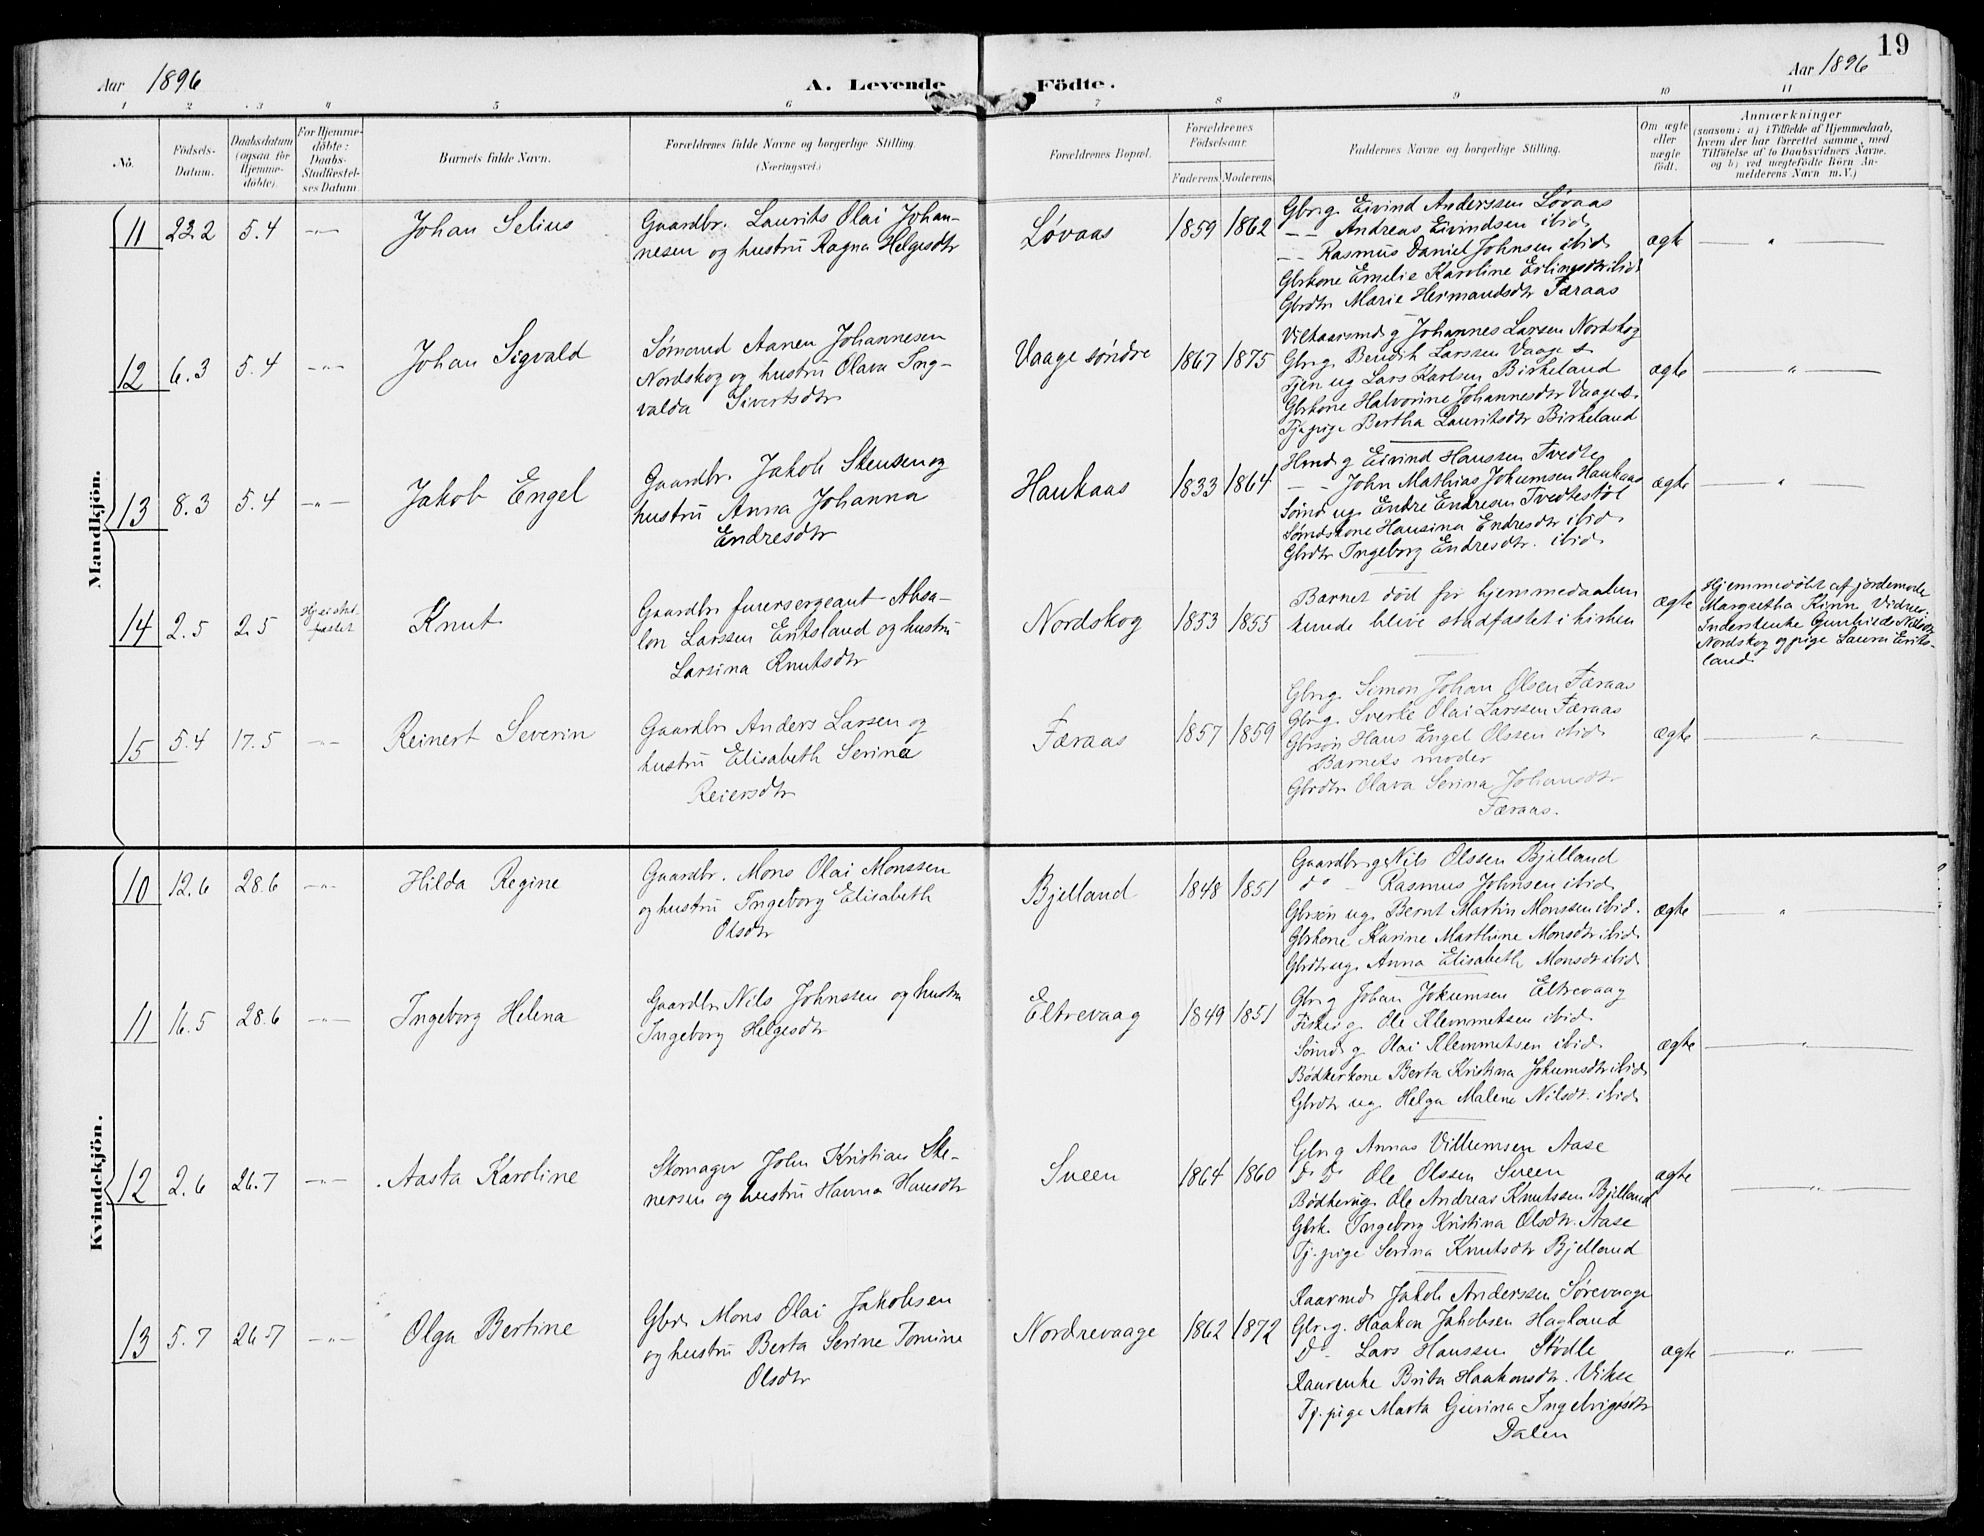 19
Aar 1896
A. Levende Födte.
Aar 1896
1 2 3 4 5 6 7 8 9 10 11
No.
Födsels-
Datum.
Daabsdatum
(ogsaa for
Hjemme-
döbte).
For Hjemme-
döbte:
Daabs-
Stadfæstel-
ses Datum.
Barnets fulde Navn.
Forældrenes fulde Navne og borgerlige Stilling.
(Næringsvei.)
Forældrenes Bopæl.
Forældrenes
Födselsaar.
Faderens. Moderens.
Faddernes Navne og borgerlige Stilling.
Om ægte
eller
uægte
födt.
Anmærkninger
(saasom: a) i Tilfælde af Hjemmedaab,
hvem der har forrettet samme, med
Tilföielse af to Daabsvidners Navne.
og b) ved uegtefödte Börn An-
melderens Navn m. V.)
Mandkjön.
11
22.2
5.4
-"-
Johan Selius
Gaardbr. Laurits Olai Johan-
nesen og hustru Ragna Helgesdtr
Løvaas
1859
1862
Gbr g. Eivind Anderssen Løvaas
-- Andreas Eivindsen ibid.
-- Rasmus Daniel Johnsen ibid.
Gbrkone Emelie Karoline Erlingsdtr ibid
Gbrdtr Marie Hermandsdtr Færaas
ægte
"
12
6.3
5.4
-"-
Johan Sigvald
Sømand Aanen Johannesen
Nordskog og hustru Olava Ing-
valda Sivertsdtr
Vaage søndre
1867
1875
Vilkaarsmd g Johannes Larsen Nordskog
Gbr g. Bendik Larssen Vaage s.
Tjen ug Lars Karlsen Birkeland
Gbrkone Halvorine Johannesdtr Vaage s.
Tj. pige Bertha Lauritsdtr Birkeland
ægte
"
13
8.3
5.4
-"-
Jakob Engel
Gaardbr. Jakob Stensen og
hustru Anna Johanna
Endresdtr
Haukaas
1833
1864
Hmd g Eivind Hanssen Tvedte
-- John Mathias Johumsen Haukaas
Sømd ug Endre Endresen Tvedtestøl
Sømdskone Hansina Endresdtr ibid.
Gbrdtr Ingeborg Endresdtr. ibid.
ægte
"
14
2.5
2.5
Knut
Gaardbr. furersergeant Absa-
lon Larssen Eritsland og hustru
Larsina Knutsdtr
Nordskog
1853
1855
Barnet død før hjemmedaaben
kunde blive stadfæstet i kirken
ægte
Hjemmedøbt af jordemoder
Margretha Kinn Vidner:
Inderstenke Gunhild Nilsdtr
Nordskog og pige Laura Erits-
land.
15
5.4
17.5
-"-
Reinert Severin
Gaardbr Anders Larsen og
hustru Elisabeth Serina
Reiersdtr
Færaas
1857
1859
Gbr g. Simon Johan Olsen Færaas
Gbr g. Sverke Olai Larssen Færaas
Gbrsøn Hans Engel Olssen ibid.
Barnets moder
Gbrdtr Olava Serina Johansdtr
Færaas.
ægte
"
Kvindekjön.
10
12.6
28.6
-"-
Hilda Regine
Gaardbr. Mons Olai Monssen
og hustru Ingeborg Elisabeth
Olsdtr
Bjelland
1848
1851
Gaardbr g. Nils Olssen Bjelland
do - Rasmus Johnsen ibid.
Gbrsøn ug. Bernt Martin Monssen ibid.
Gbrkone Karine Marthine Monsdtr ibid.
Gbrdtr ug. Anna Elisabeth Monsdtr ibid.
ægte
"
11
16.5
28.6
-"-
Ingeborg Helena
Gaardbr. Nils Johnssen og hustru
Ingeborg Helgesdtr
Eltrevaag
1849
1851
Gbr g Johan Jokumsen Eltrevaag
Fisker g. Ole Klemmetsen ibid.
Sømd g Olai Klemmetsen ibid.
Bødkerkone Berta Kristina Jokumsdtr ibid.
Gbrdtr ug. Helga Malene Nilsdtr. ibid.
ægte
"
12
2.6
26.7
-"-
Aasta Karoline
Skomager John Kristian Ste-
nersen og hustru Hanna Hansdtr
Sveen
1864
1860
Gbr g Annas Villumsen Aase
D. D. Ole Olssen Sveen
Bødker ug. Ole Andreas Knutssen Bjelland
Gbrk. Ingeborg Kristina Olsdtr. Aase
Tj. pige Serina Knutsdtr Bjelland
ægte
"
13
5.7
26.7
-"-
Olga Bertine
Gbr. Mons Olai Jakobsen
og hustru Berta Serine Tomine
Olsdtr
Nordrevaage
1862
1872
Kaarmd. Jakob Anderssen Sørevaage
Gbr. g. Haakon Jakobsen Hagland
D - Lars Hanssen Stødle
Kaarenke Brita Haakonsdtr. Vikse
Tj. pige Marta Gurina Ingebrigtsdtr
Dalen
ægte
"